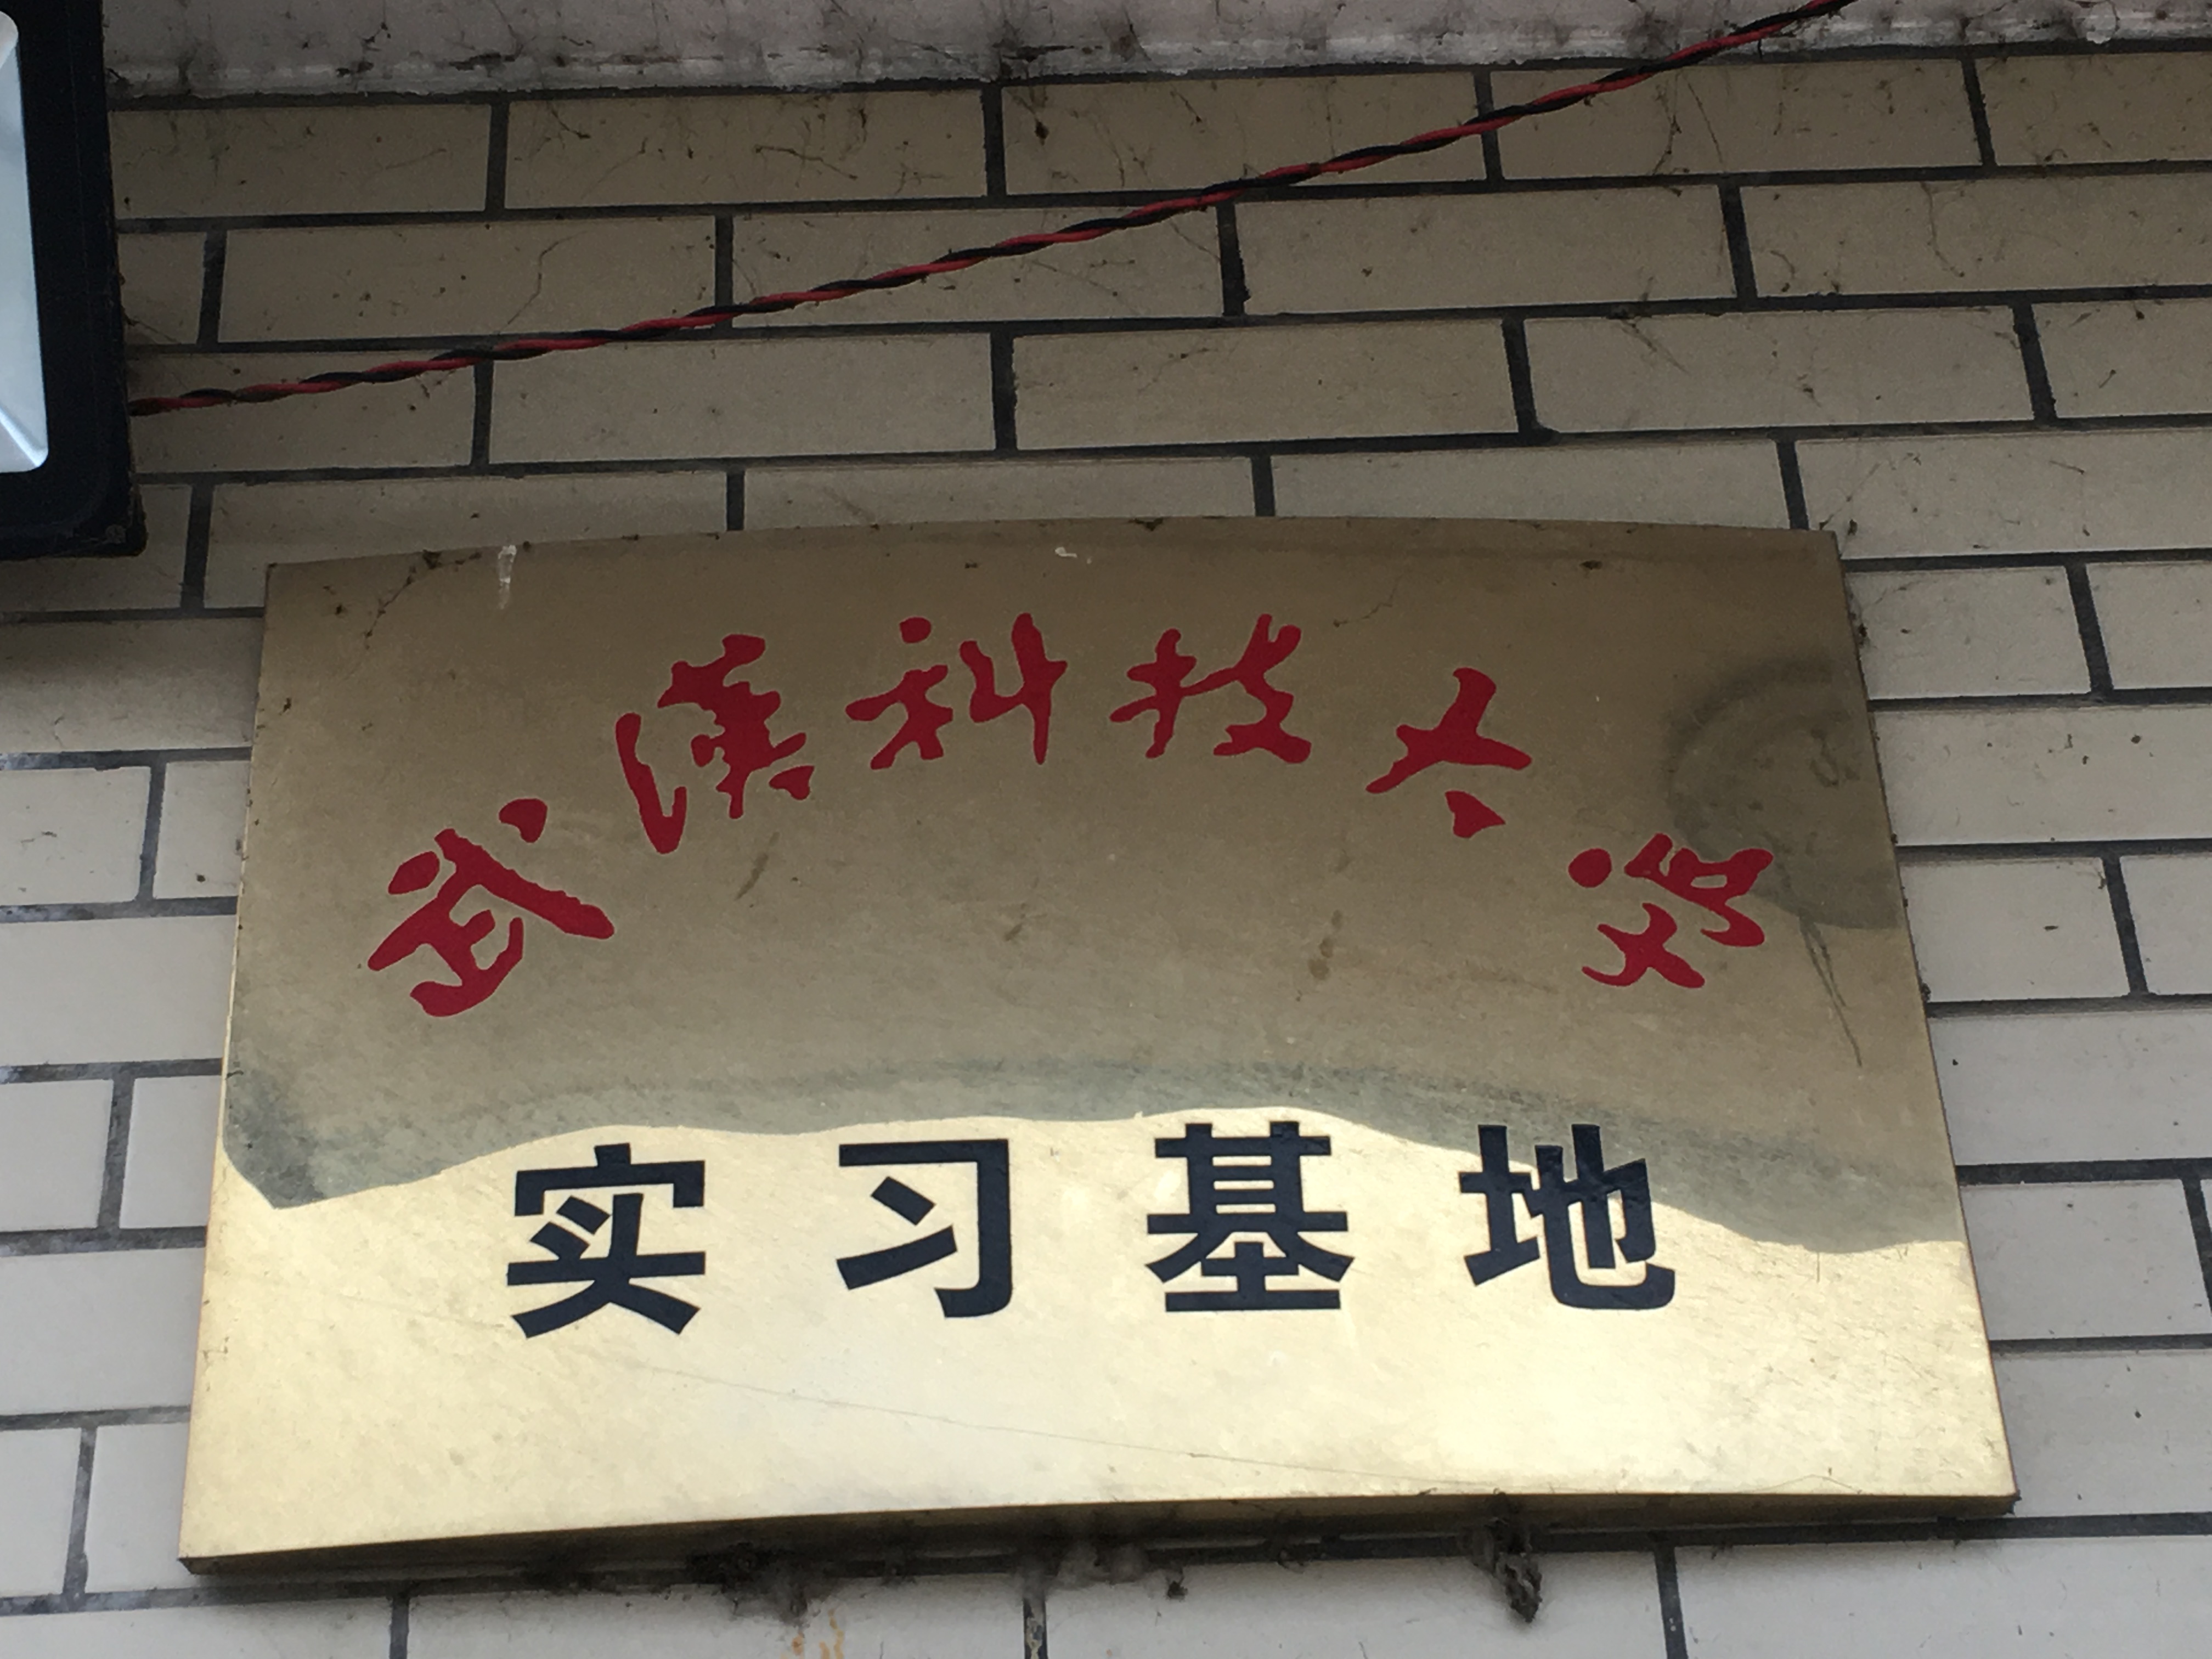 武漢科技大学
实习基地